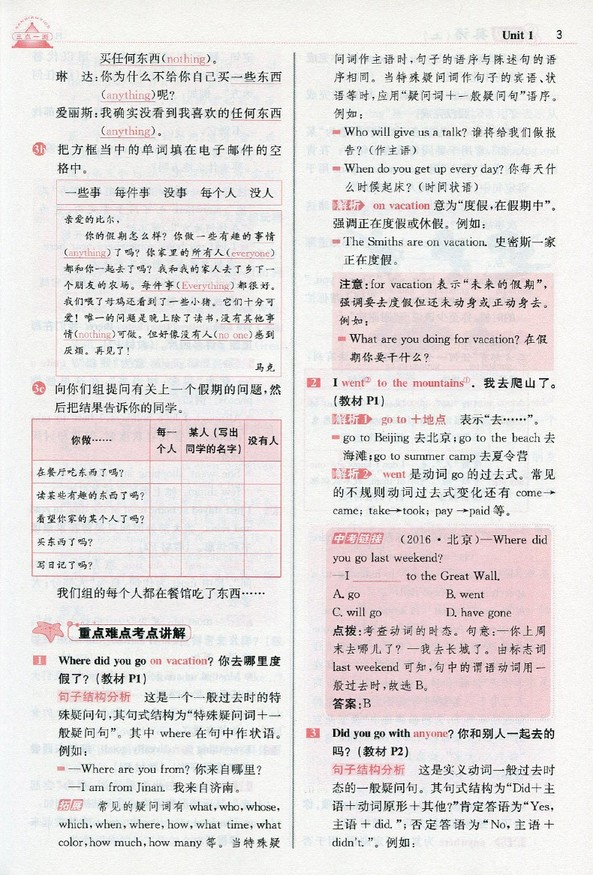 三点一测
Unit 1 3
买任何东西(nothing)。
琳　达:你为什么不给你自己买一些东西
(anything)呢?
爱丽斯:我确实没看到我喜欢的任何东西
(anything)。
3b 把方框当中的单词填在电子邮件的空
格中。
一些事 每件事 没事 每个人 没人
亲爱的比尔,
你的假期怎么样? 你做一些有趣的事情
(anything)了吗? 你家里的所有人(everyone)
都和你一起去了吗? 我和我的家人去了乡下一
个朋友的农场。每件事(Everything)都很好。
我们喂了母鸡还看到了一些小猪。它们十分可
爱! 唯一的问题是晚上除了读书,没有其他事
情(nothing)可做。但好像没有人(no one)感到
厌烦。再见了!
马克
3c 向你们组提问有关上一个假期的问题,然
后把结果告诉你的同学。
你做…… 每一个人 某人(写出同学的名字) 没有人
在餐厅吃东西了吗?
读某些有趣的东西了吗?
看望你家的某个人了吗?
买东西了吗?
写日记了吗?
我们组的每个人都在餐馆吃了东西……
重点难点考点讲解
1 Where did you go on vacation? 你去哪里度
假了? (教材 P1)
句子结构分析 这是一个一般过去时的特
殊疑问句,其句式结构为“特殊疑问词＋一
般疑问句”。其中 where 在句中作状语。
例如:
—Where are you from? 你来自哪里?
—I am from Jinan. 我来自济南。
拓展 常见的疑问词有 what, who, whose,
which, when, where, how, what time, what
color, how much, how many 等。当特殊疑
问词作主语时,句子的语序与陈述句的语
序相同。当特殊疑问词作句子的宾语、状
语等时,应用“疑问词＋一般疑问句”语序。
例如:
Who will give us a talk? 谁将给我们做报
告? (作主语)
When do you get up every day? 你每天什
么时候起床? (时间状语)
解析 on vacation 意为“度假,在假期中”。
强调正在度假或休假。例如:
The Smiths are on vacation. 史密斯一家
正在度假。
注意:for vacation 表示“未来的假期”,
强调要去度假但还未动身或正动身去。
例如:
What are you doing for vacation? 在假
期你要干什么?
2 I went② to the mountains①. 我去爬山了。
(教材 P1)
解析 1 go to＋地点 表示“去……”。
go to Beijing 去北京;go to the beach 去
海滩;go to summer camp 去夏令营
解析 2 went 是动词 go 的过去式。常见
的不规则动词过去式变化还有 come→
came; take→took; pay→paid 等。
中考链接 (2016·北京)—Where did
you go last weekend?
—I ______ to the Great Wall.
A. go B. went
C. will go D. have gone
点拨:考查动词的时态。句意:—你上周
末去哪儿了? —我去长城了。由标志词
last weekend 可知,句中的谓语动词用一
般过去时,故选 B。
答案:B
3 Did you go with anyone? 你和别人一起去的
吗? (教材 P2)
句子结构分析 这是实义动词一般过去时
态的一般疑问句。其句式结构为“Did＋主
语＋动词原形＋其他?”肯定答语为“Yes,
主语＋did.”;否定答语为“No, 主语＋
didn't.”。例如: